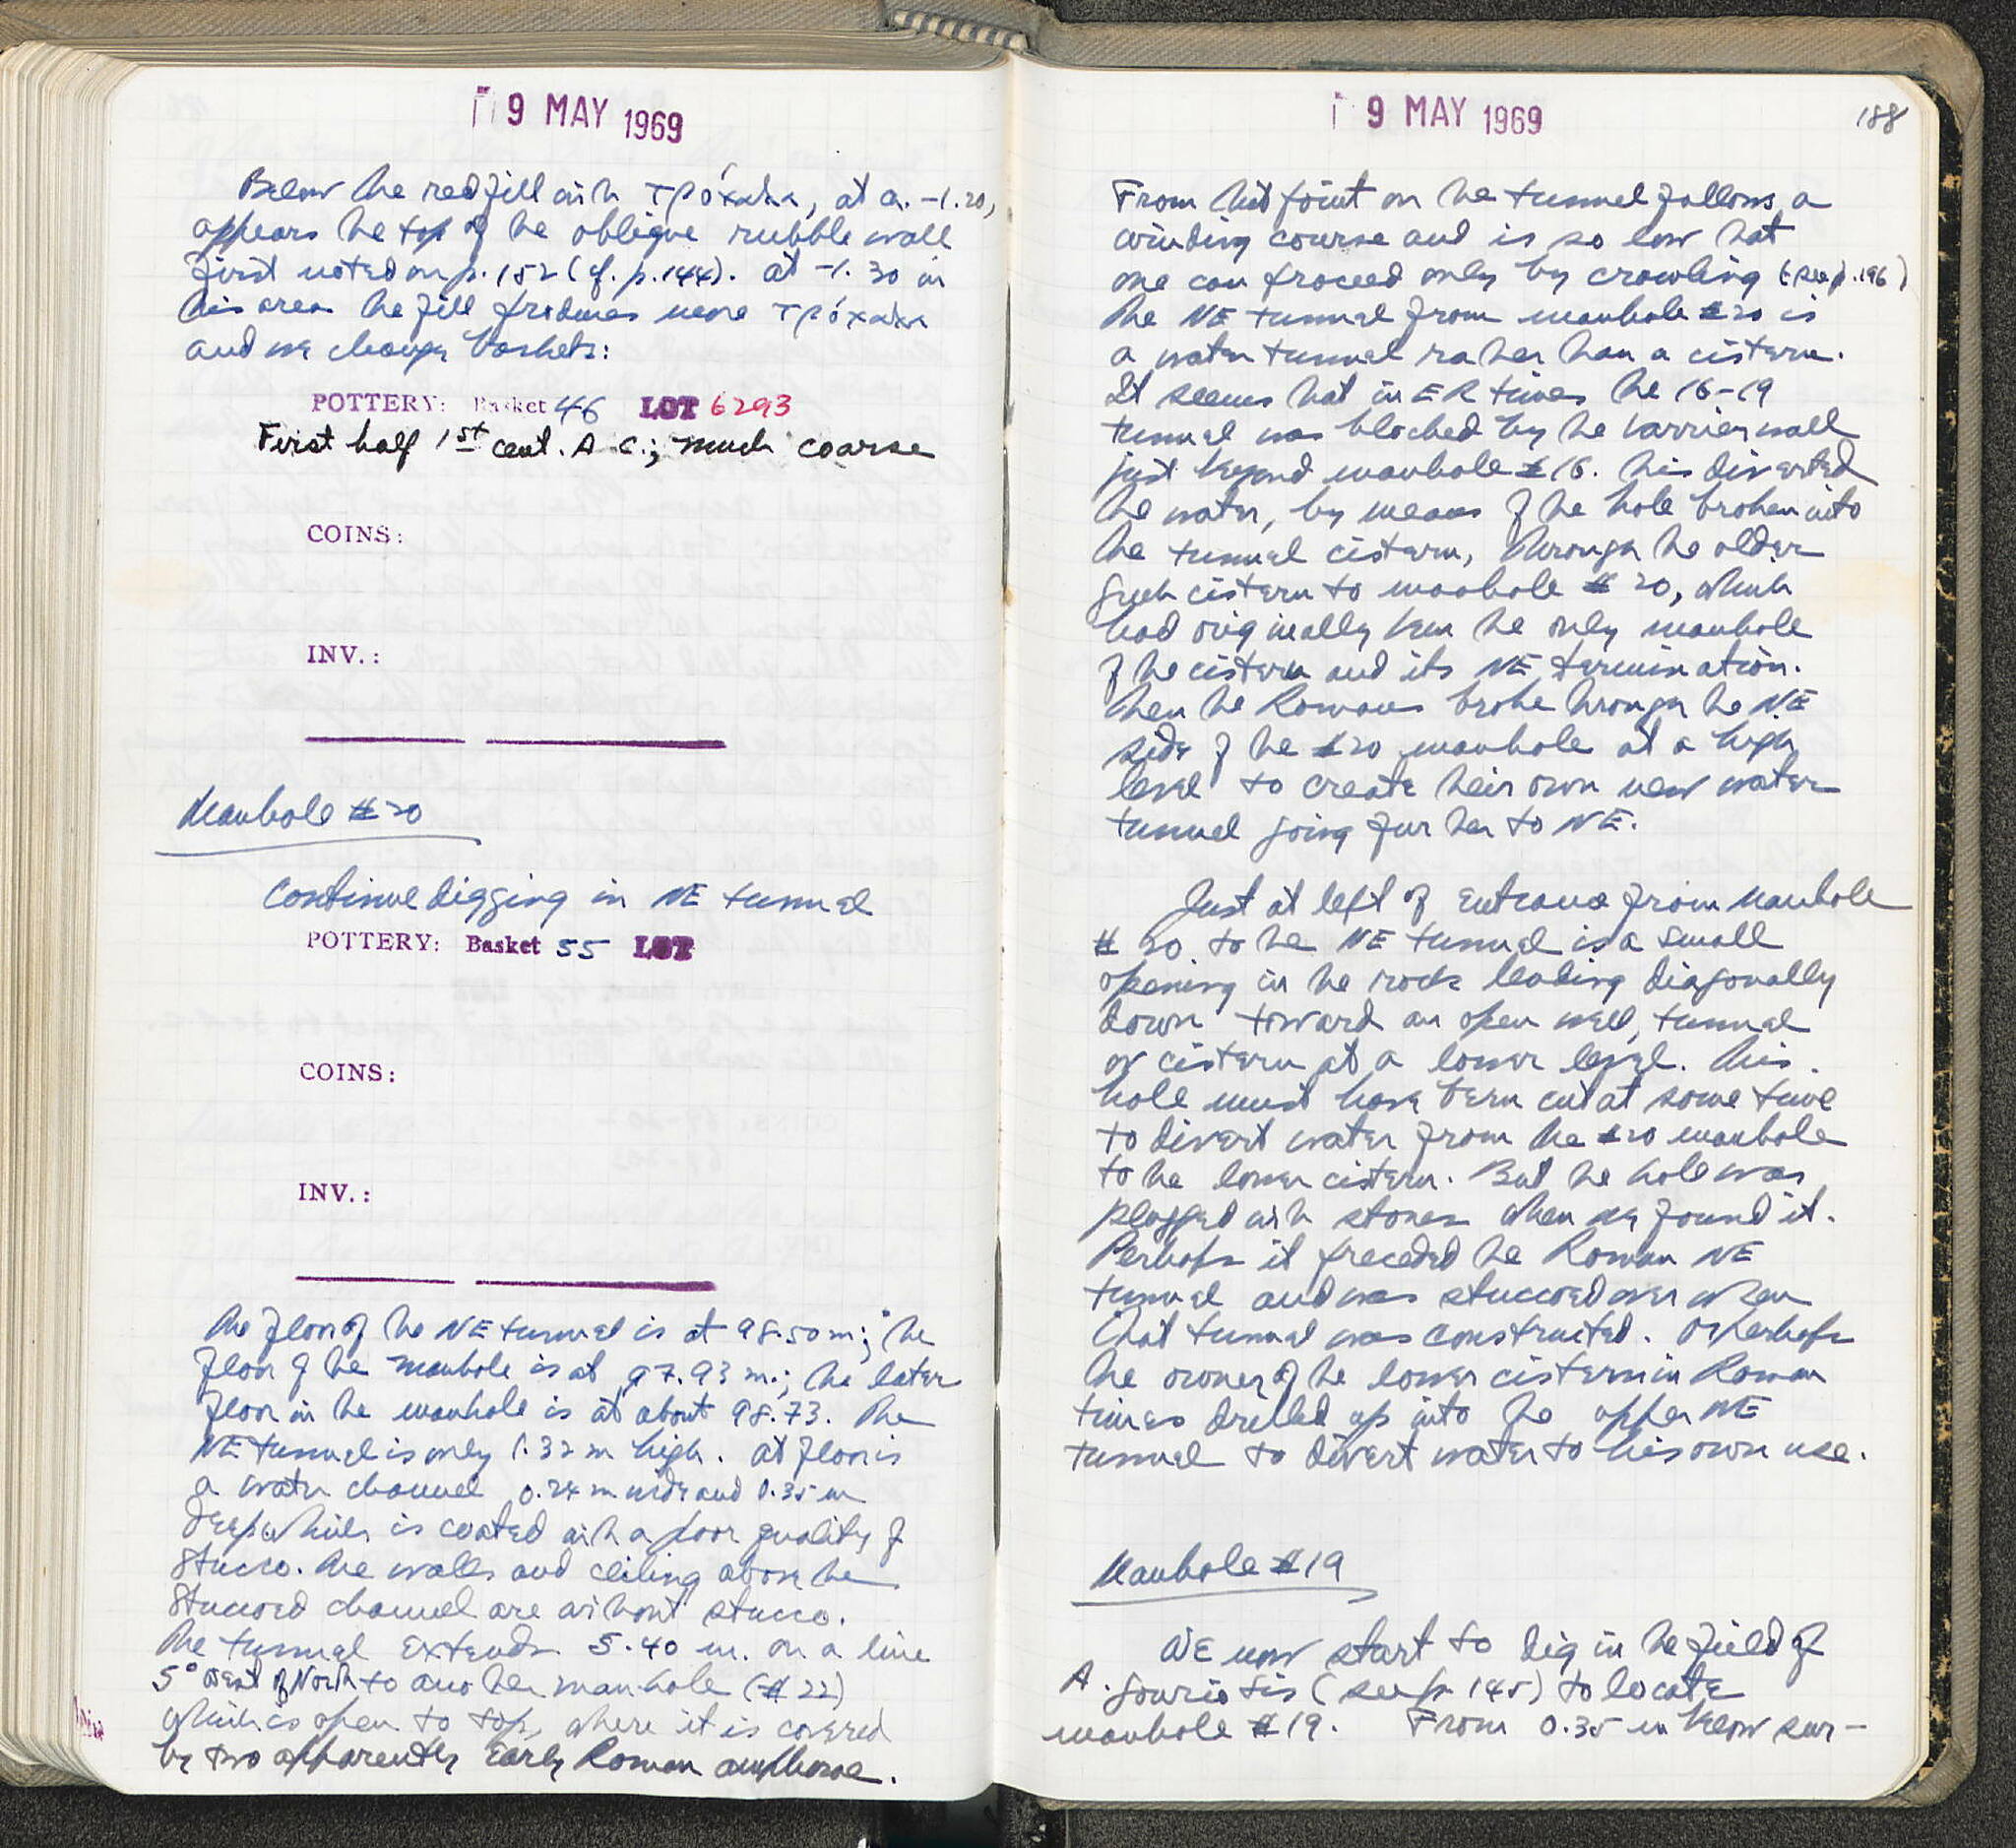 9 MAY 1969
Below the red fill with τρόχαλα, at a. -1.20,
appears the top of the oblique rubble wall
first noted on p. 152 (cf. p. 144). at -1.30 in
this area the fill produces more τρόχαλα
and we change baskets:
POTTERY: Basket 46 LOT 6293
First half 1st cent. A.C.; much coarse
COINS:
INV.:
Manhole #20
Continue digging in NE tunnel
POTTERY: Basket 55 LOT
COINS:
INV.:
The floor of the NE tunnel is at 98.50 m; the
floor of the manhole is at 97.93 m.; the later
floor in the manhole is at about 98.73. The
NE tunnel is only 1.32 m high. at floor is
a water channel 0.24 m wide and 0.35 m
deep which is coated with a poor quality of
stucco. The walls and ceiling above the
stuccoed channel are without stucco.
The tunnel extends 5.40 m. on a line
5° West of North to another manhole (#22)
which is open to top, where it is covered
by two apparently Early Roman amphorae.
9 MAY 1969
188
From this point on the tunnel follows a
winding course and is so low that
one can proceed only by crawling (see p. 196)
The NE tunnel from manhole #20 is
a water tunnel rather than a cistern.
It seems that in ER times the 16-19
tunnel was blocked by the barrier wall
just beyond manhole #16. This diverted
the water, by means of the hole broken into
the tunnel cistern, through the older
Greek cistern to manhole #20, which
had originally been the only manhole
of the cistern and its NE termination.
Then the Romans broke through the NE
side of the #20 manhole at a high
level to create their own new water
tunnel going further to NE.
Just at left of entrance from Manhole
#20 to the NE tunnel is a small
opening in the rock leading diagonally
down toward an open well, tunnel
or cistern at a lower level. This
hole must have been cut at some time
to divert water from the #20 manhole
to the lower cistern. But the hole was
plugged with stones when we found it.
Perhaps it preceded the Roman NE
tunnel and was stuccoed over when
that tunnel was constructed. Or perhaps
the owner of the lower cistern in Roman
times drilled up into the upper NE
tunnel to divert water to his own use.
Manhole #19
We now start to dig in the field of
A. Gouriotis (see p. 145) to locate
manhole #19. From 0.35 m below sur-